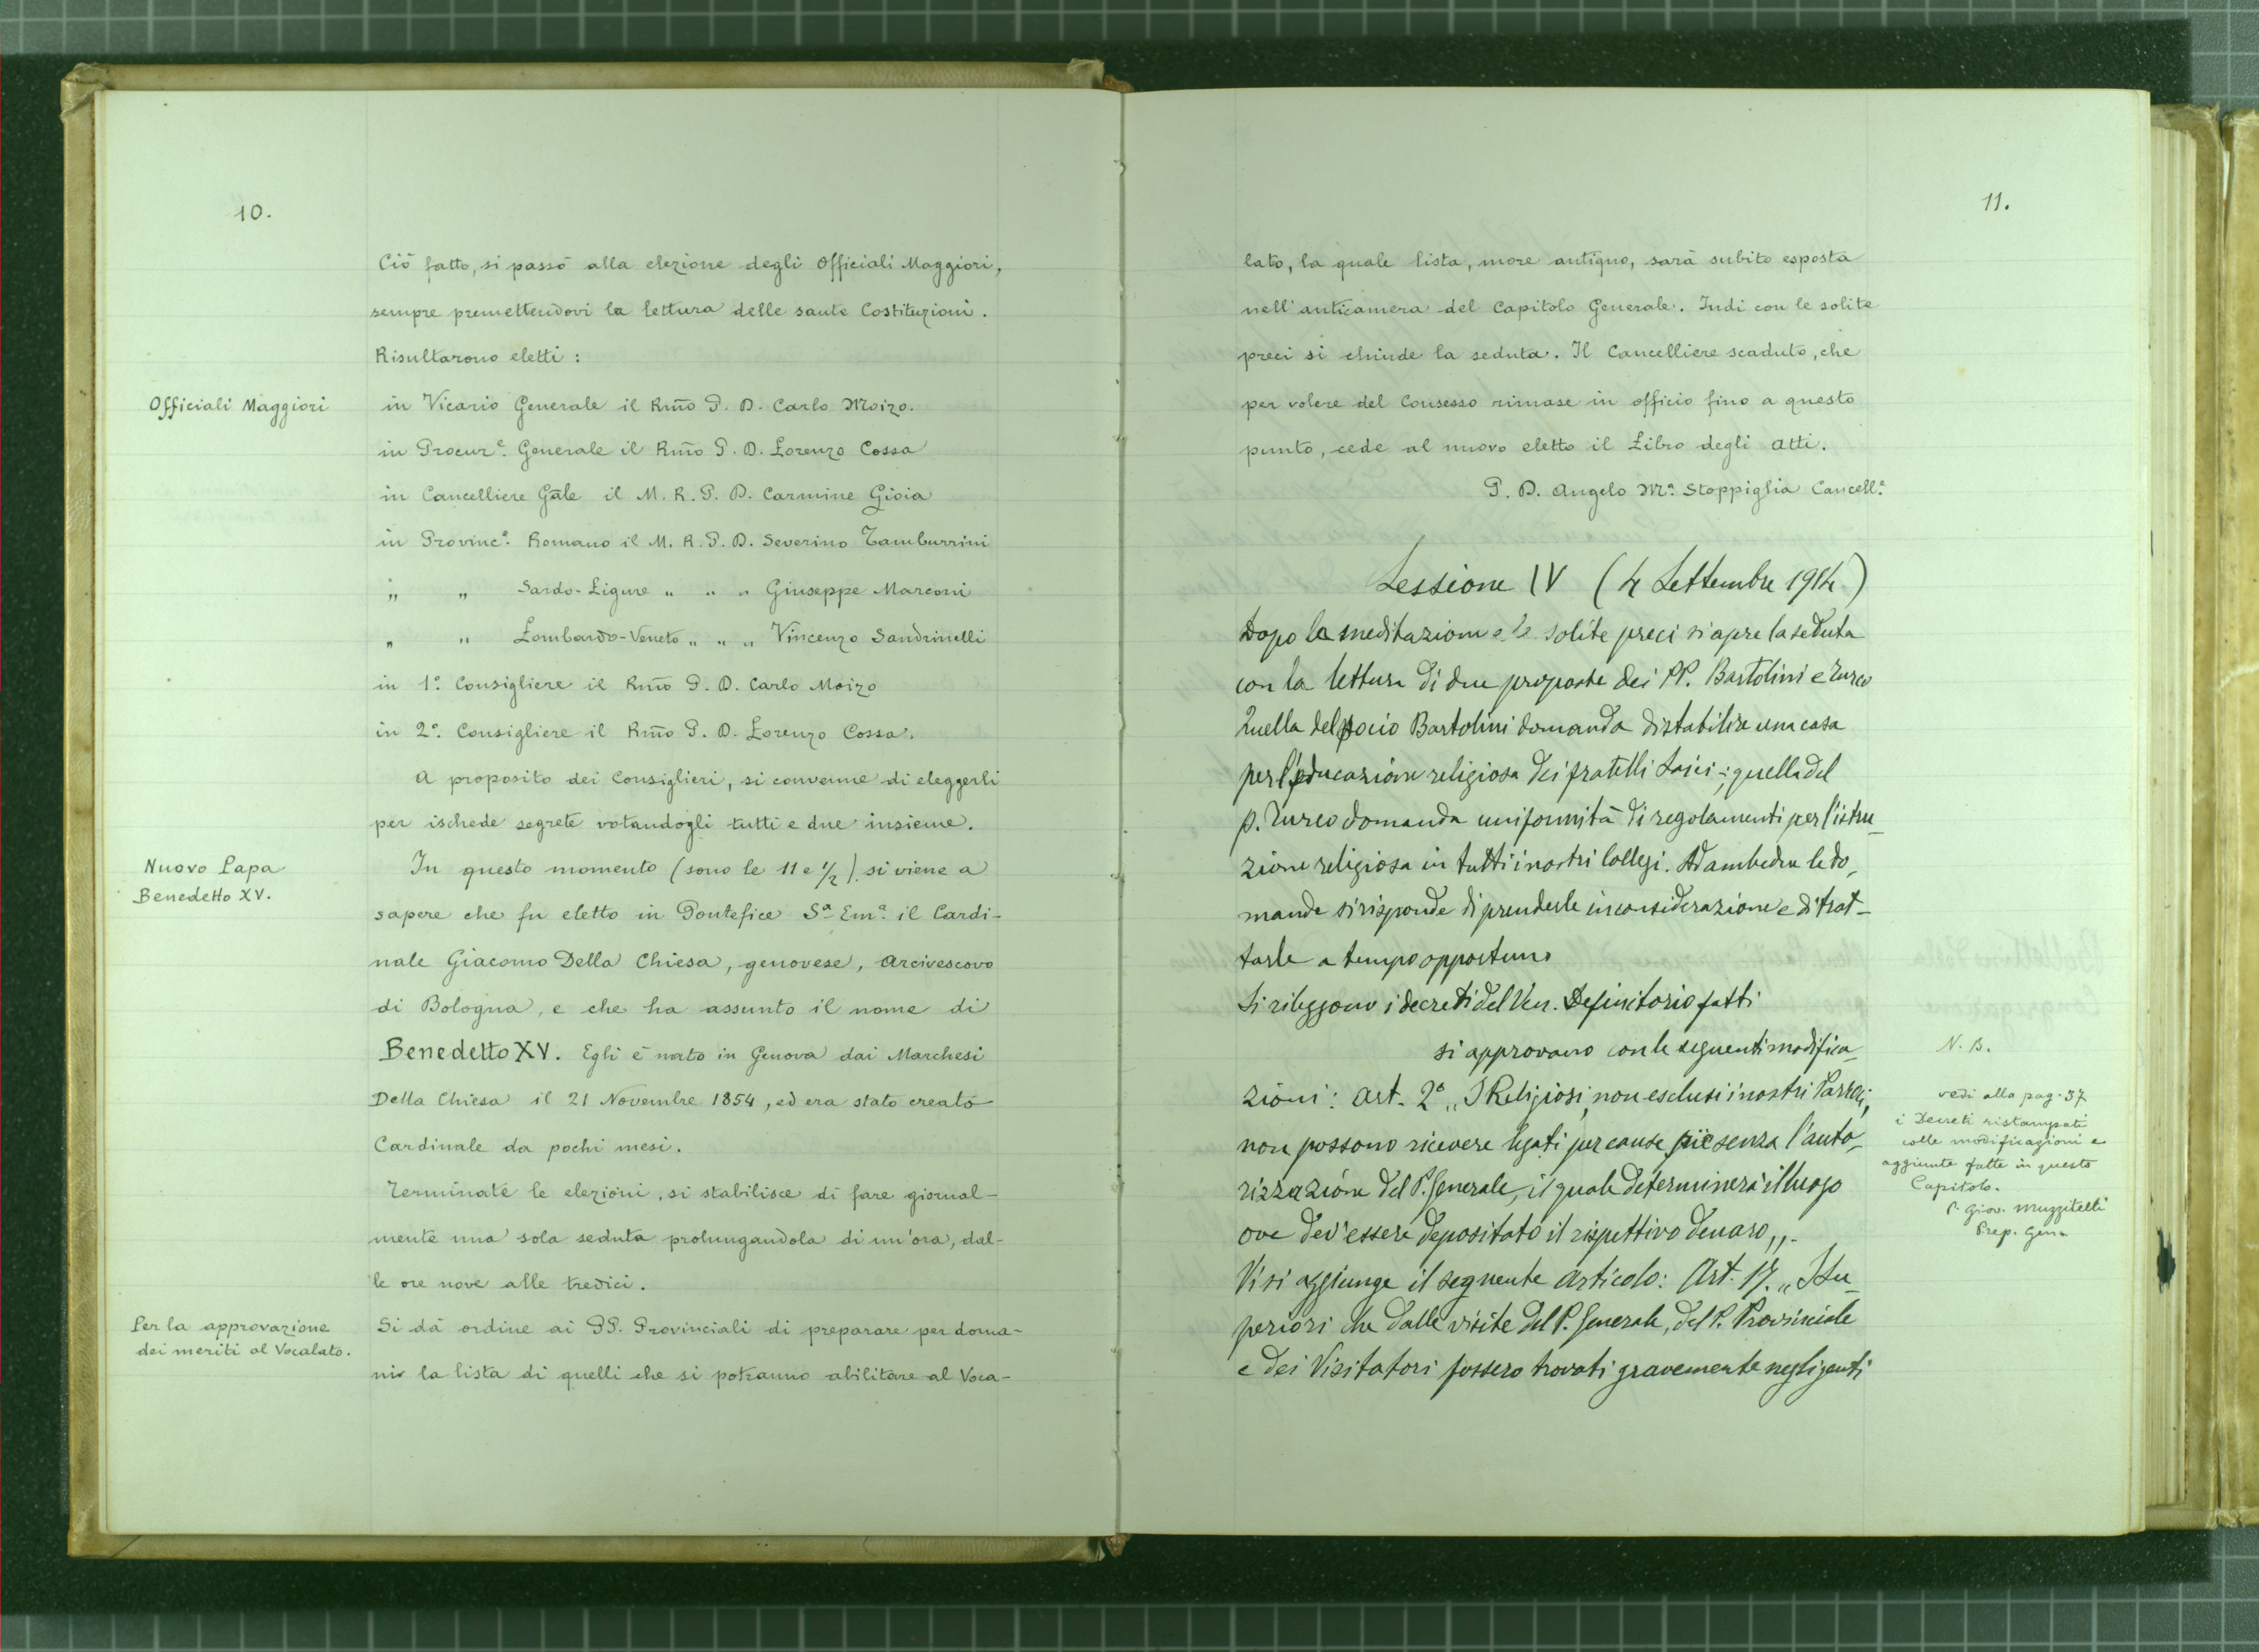 10.
Ciò fatto, si passò alla elezione degli Officiali Maggiori,
sempre premettendovi la lettura delle sante Costituzioni.
Risultarono eletti:
Officiali Maggiori
in Vicario Generale il Rmo P. D. Carlo Moizo.
in Procure. Generale il Rmo P. D. Lorenzo Cossa
in Cancelliere Gale il M. R. P. D. Carmine Gioia
in Province. Romano il M. R. P. D. Severino Tamburrini
„ „ Sardo-Ligure „ „ „ Giuseppe Marconi
„ „ Lombardo-Veneto „ „ „ Vincenzo Sandrinelli
in 1º. Consigliere il Rmo P. D. Carlo Moizo
in 2º. Consigliere il Rmo P. D. Lorenzo Cossa.
A proposito dei Consiglieri, si convenne di eleggerli
per ischede segrete votandogli tutti e due insieme.
Nuovo Papa
Benedetto XV.
In questo momento (sono le 11 e 1/2) si viene a
sapere che fu eletto in Pontefice Sª Emª. il Cardi-
nale Giacomo Della Chiesa, genovese, Arcivescovo
di Bologna, e che ha assunto il nome di
Benedetto XV. Egli è nato in Genova dai Marchesi
Della Chiesa il 21 Novembre 1854, ed era stato creato
Cardinale da pochi mesi.
Terminate le elezioni, si stabilisce di fare giornal-
mente una sola seduta prolungandola di un'ora, dal-
le ore nove alle tredici.
Per la approvazione
dei meriti al Vocalato.
Si dà ordine ai PP. Provinciali di preparare per doma-
ni la lista di quelli che si potranno abilitare al Voca-
11.
lato, la quale lista, more antiquo, sarà subito esposta
nell'anticamera del Capitolo Generale. Indi con le solite
preci si chiude la seduta. Il Cancelliere scaduto, che
per volere del Consesso rimase in officio fino a questo
punto, cede al nuovo eletto il Libro degli Atti.
P. D. Angelo Mª. Stoppiglia Cancell.e
Sessione IV (4 Settembre 1914)
Dopo la meditazione e le solite preci si apre la seduta
con la lettura di due proposte dei PP. Bartolini e Turco
Quella del socio Bartolini domanda di stabilire una casa
per l'educazione religiosa dei fratelli Laici; quella del
p. Turco domanda uniformità di regolamenti per l'istru_
zione religiosa in tutti i nostri Collegi. Ad ambedue le do_
mande si risponde di prenderle in considerazione e di trat_
tarle a tempo opportuno
Si rileggono i decreti del Ven. Definitorio fatti
si approvano con le seguenti modifica_
zioni: Art. 2º „I Religiosi, non esclusi i nostri Parroci,
non possono ricevere legati per cause pie senza l'auto_
rizzazione del P. Generale, il quale determinerà il luogo
ove dev'essere depositato il rispettivo denaro„.
Vi si aggiunge il seguente articolo: Art. 17. „I Su_
periori che dalle visite del P. Generale, del P. Provinciale
e dei Visitatori fossero trovati gravemente negligenti
N. B.
vedi alla pag. 37
i Decreti ristampati
colle modificazioni e
aggiunte fatte in questo
Capitolo.
P. Giov. Muzzitelli
Prep. Gen.